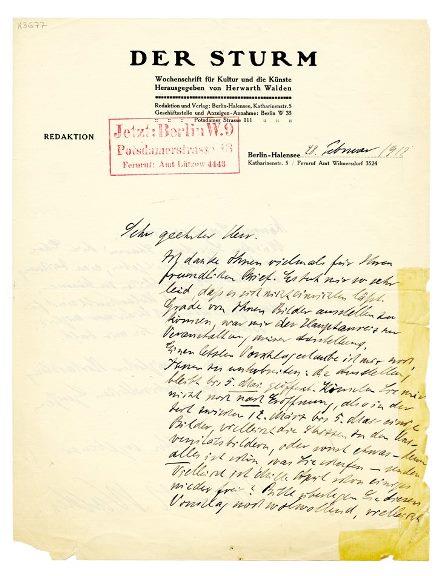 K3677
DER STURM
Wochenschrift für Kultur und die Künste
Herausgegeben von Herwarth Walden
Redaktion und Verlag: Berlin-Halensee, Katharinenstr. 5
Geschäftsstelle und Anzeigen-Annahme: Berlin W 35
Potsdamer Strasse 111
REDAKTION
Jetzt: Berlin W. 9
Potsdamerstrasse 18
Fernruf: Amt Lützow 4443
Berlin-Halensee 28. Februar 1912
Katharinenstr. 5 / Fernruf Amt Wilmersdorf 3524
Sehr geehrter Herr.
Ich danke Ihnen vielmals für Ihren
freundlichen Brief. Es tut mir so sehr
leid dass es sich nicht einrichten lässt.
Grade von Ihnen Bilder ausstellen zu
können, war mir der Hauptanreiz zur
Veranstaltung meiner Ausstellung.
Einen letzten Vorschlag erlaube ich mir noch
Ihnen zu unterbreiten: die Ausstellung
bleibt bis 5. Mai geöffnet. Können Sie mir
nicht noch nach Eröffnung, also in der
Zeit zwischen 12. März bis 5. Mai einige
Bilder, vielleicht die Skizzen zu den
versitätsbildern, oder sonst etwas
alles ist schön, was Sie schaffen – senden
Vielleicht ist Anfang April schon einiges
wieder frei? Bitte überlegen Sie diesen
Vorschlag noch wohlwollend, vielleicht